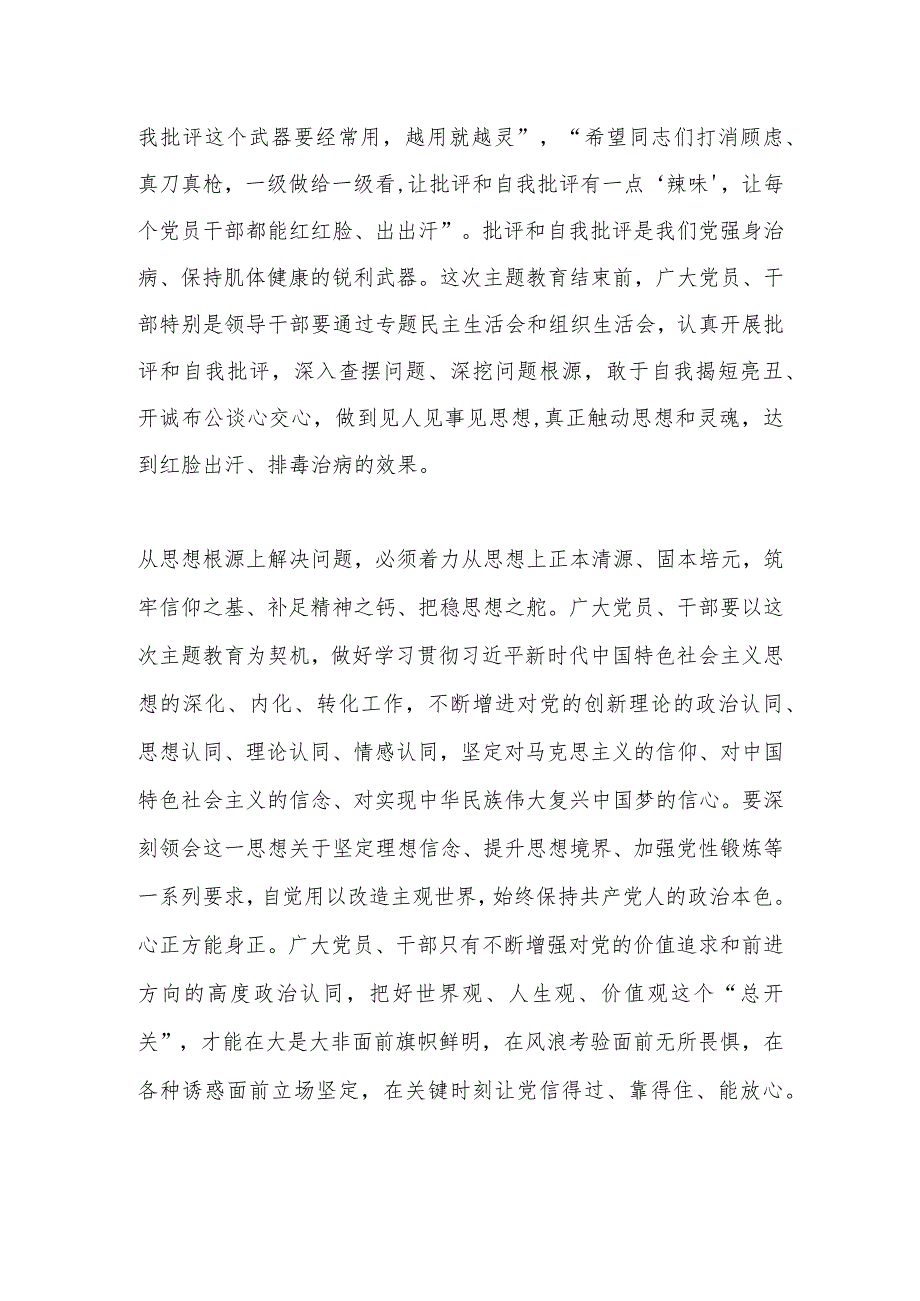 我批评这个武器要经常用，越用就越灵”，“希望同志们打消顾虑、
真刀真枪，一级做给一级看,让批评和自我批评有一点‘辣味'，让每
个党员干部都能红红脸、出出汗”。批评和自我批评是我们党强身治
病、保持肌体健康的锐利武器。这次主题教育结束前，广大党员、干
部特别是领导干部要通过专题民主生活会和组织生活会，认真开展批
评和自我批评，深入查摆问题、深挖问题根源，敢于自我揭短亮丑、
开诚布公谈心交心，做到见人见事见思想,真正触动思想和灵魂，达
到红脸出汗、排毒治病的效果。
从思想根源上解决问题，必须着力从思想上正本清源、固本培元，筑
牢信仰之基、补足精神之钙、把稳思想之舵。广大党员、干部要以这
次主题教育为契机，做好学习贯彻习近平新时代中国特色社会主义思
想的深化、内化、转化工作，不断增进对党的创新理论的政治认同、
思想认同、理论认同、情感认同，坚定对马克思主义的信仰、对中国
特色社会主义的信念、对实现中华民族伟大复兴中国梦的信心。要深
刻领会这一思想关于坚定理想信念、提升思想境界、加强党性锻炼等
一系列要求，自觉用以改造主观世界，始终保持共产党人的政治本色。
心正方能身正。广大党员、干部只有不断增强对党的价值追求和前进
方向的高度政治认同，把好世界观、人生观、价值观这个“总开
关”，才能在大是大非面前旗帜鲜明，在风浪考验面前无所畏惧，在
各种诱惑面前立场坚定，在关键时刻让党信得过、靠得住、能放心。